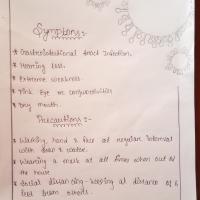 Symptoms :-
* Gastrointestinal tract infection.
* Hearing loss.
* Extreme weakness.
* Pink eye or conjunctivitis
* Dry mouth.
Precautions :-
* Washing hand & face at regular interval
with soap & water.
* Wearing a mask at all times when out of
the house
* Social distancing - keeping at distance of 6
feet from others.